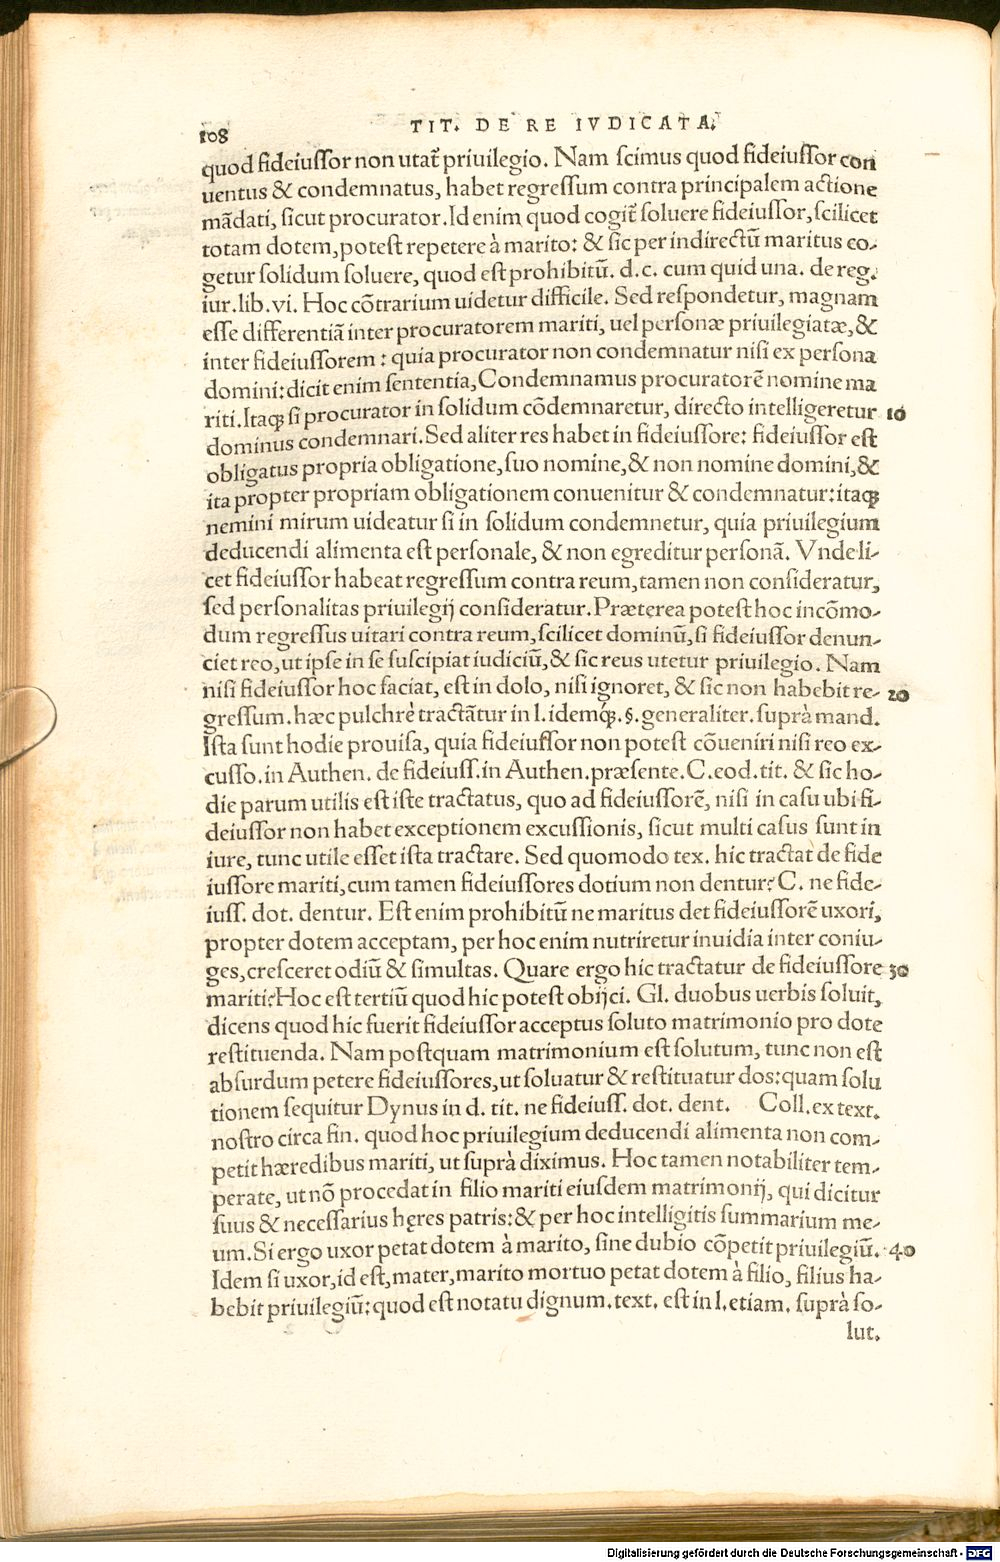 108
TIT. DE RE IVDICATA.
quod fideiuſſor non utat̃ priuilegio. Nam ſcimus quod fideiuſſor con
uentus & condemnatus, habet regreſſum contra principalem actione
mãdati, ſicut procurator. Id enim quod cogit̃ ſoluere fideiuſſor, ſcilicet
totam dotem, poteſt repetere à marito: & ſic per indirectũ maritus co-
getur ſolidum ſoluere, quod eſt prohibitũ. d. c. cum quid una. de reg.
iur. lib. vi. Hoc cõtrarium uidetur difficile. Sed reſpondetur, magnam
eſſe differentiã inter procuratorem mariti, uel perſonæ priuilegiatæ, &
inter fideiuſſorem: quia procurator non condemnatur niſi ex perſona
domini: dicit enim ſententia, Condemnamus procuratorẽ nomine ma
riti. Itaqꝫ ſi procurator in ſolidum cõdemnaretur, directo intelligeretur 10
dominus condemnari. Sed aliter res habet in fideiuſſore: fideiuſſor eſt
obligatus propria obligatione, ſuo nomine, & non nomine domini, &
ita propter propriam obligationem conuenitur & condemnatur: itaqꝫ
nemini mirum uideatur ſi in ſolidum condemnetur, quia priuilegium
deducendi alimenta eſt perſonale, & non egreditur perſonã. Vnde li-
cet fideiuſſor habeat regreſſum contra reum, tamen non conſideratur,
ſed perſonalitas priuilegij conſideratur. Præterea poteſt hoc incõmo-
dum regreſſus uitari contra reum, ſcilicet dominũ, ſi fideiuſſor denun-
ciet reo, ut ipſe in ſe ſuſcipiat iudiciũ, & ſic reus utetur priuilegio. Nam
niſi fideiuſſor hoc faciat, eſt in dolo, niſi ignoret, & ſic non habebit re- 20
greſſum. hæc pulchrè tractãtur in l. idemqꝫ. §. generaliter. ſuprà mand.
Iſta ſunt hodie prouiſa, quia fideiuſſor non poteſt cõueniri niſi reo ex-
cuſſo. in Authen. de fideiuſſ. in Authen. præſente. C. eod. tit. & ſic ho-
die parum utilis eſt iſte tractatus, quo ad fideiuſſorẽ, niſi in caſu ubi fi-
deiuſſor non habet exceptionem excuſſionis, ſicut multi caſus ſunt in
iure, tunc utile eſſet iſta tractare. Sed quomodo tex. hic tractat de fide
iuſſore mariti, cum tamen fideiuſſores dotium non dentur? C. ne fide-
iuſſ. dot. dentur. Eſt enim prohibitũ ne maritus det fideiuſſorẽ uxori,
propter dotem acceptam, per hoc enim nutriretur inuidia inter coniu-
ges, creſceret odiũ & ſimultas. Quare ergo hic tractatur de fideiuſſore 30
mariti? Hoc eſt tertiũ quod hic poteſt obijci. Gl. duobus uerbis ſoluit,
dicens quod hic fuerit fideiuſſor acceptus ſoluto matrimonio pro dote
reſtituenda. Nam poſtquam matrimonium eſt ſolutum, tunc non eſt
abſurdum petere fideiuſſores, ut ſoluatur & reſtituatur dos: quam ſolu
tionem ſequitur Dynus in d. tit. ne fideiuſſ. dot. dent. Coll. ex text.
noſtro circa fin. quod hoc priuilegium deducendi alimenta non com-
petit hæredibus mariti, ut ſuprà diximus. Hoc tamen notabiliter tem-
perate, ut nõ procedat in filio mariti eiuſdem matrimonij, qui dicitur
ſuus & neceſſarius hęres patris: & per hoc intelligitis ſummarium me-
um. Si ergo uxor petat dotem à marito, ſine dubio cõpetit priuilegiũ. 40
Idem ſi uxor, id eſt, mater, marito mortuo petat dotem à filio, filius ha-
bebit priuilegiũ: quod eſt notatu dignum. text. eſt in l. etiam. ſuprà ſo-
lut.
Digitalisierung gefördert durch die Deutsche Forschungsgemeinschaft - DFG